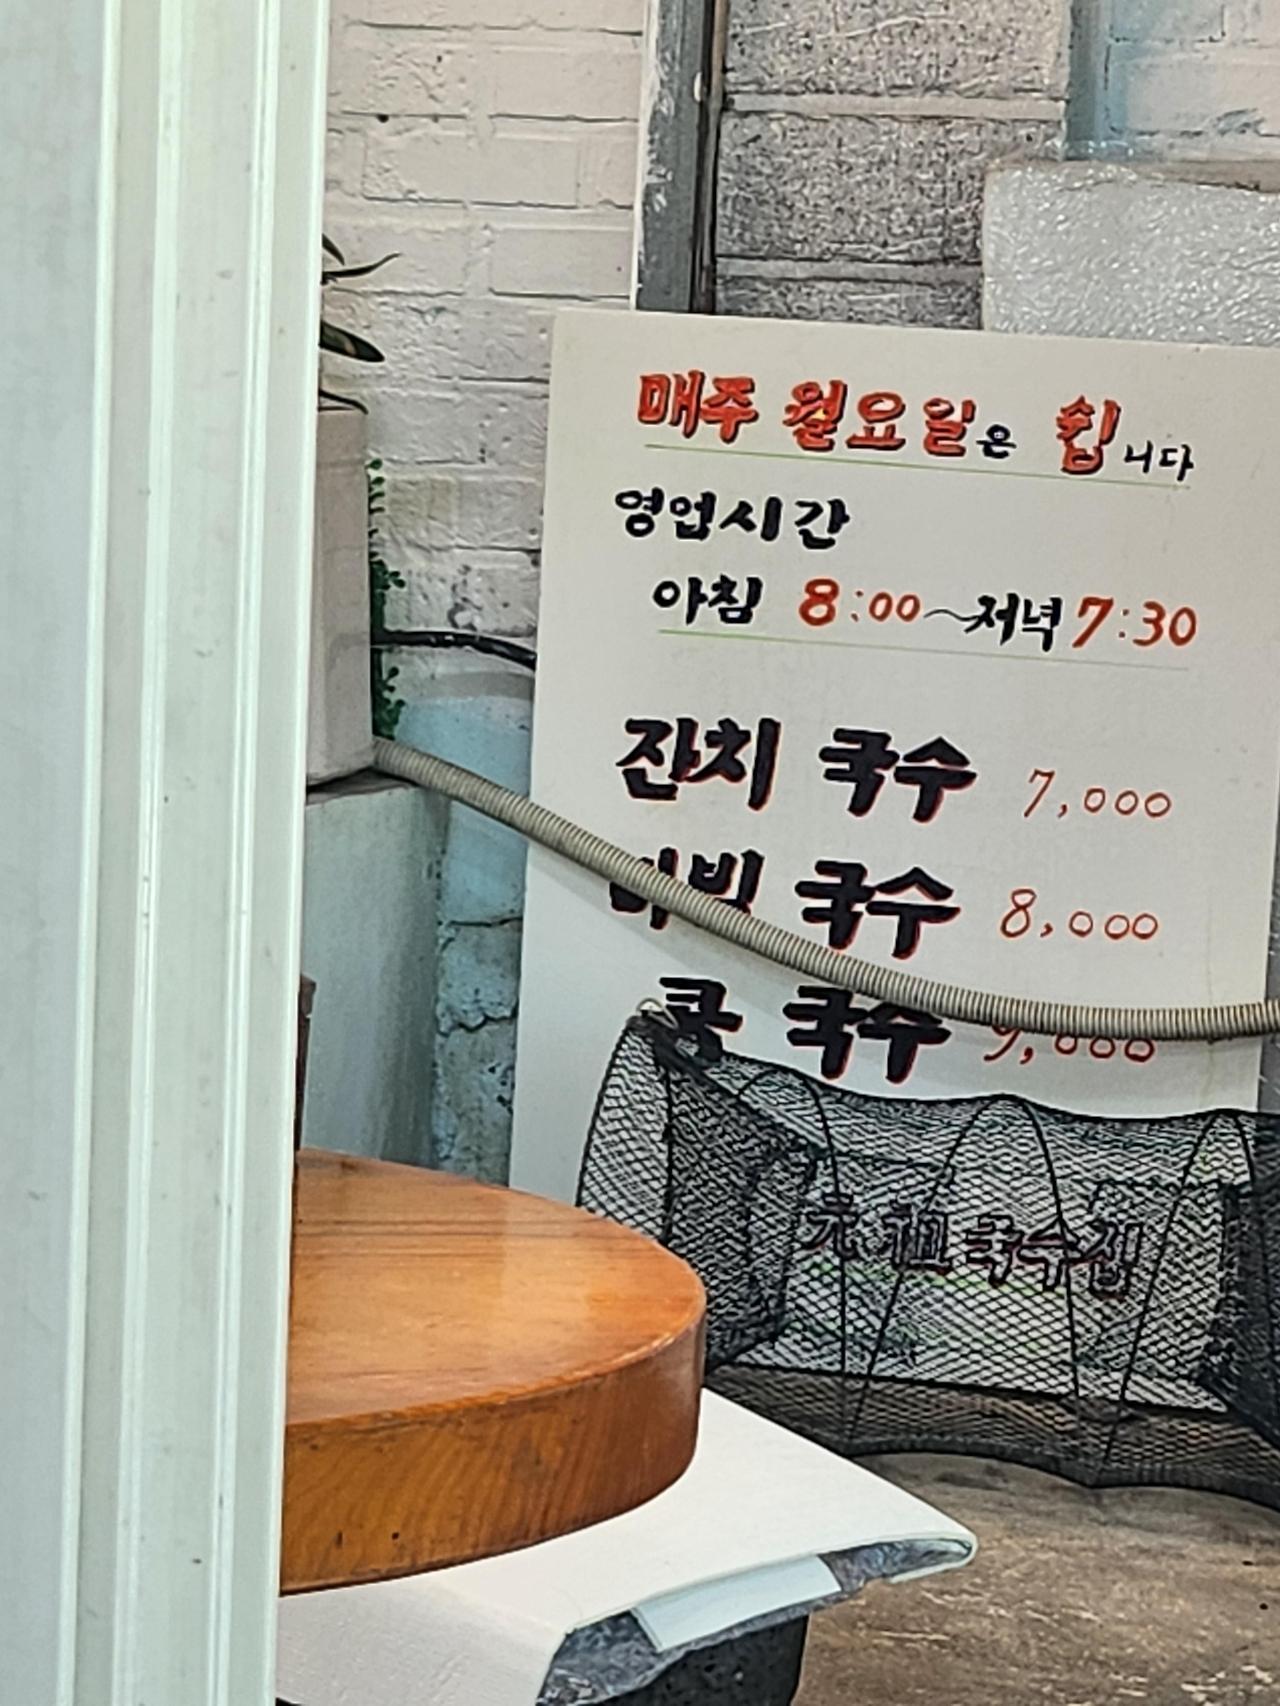 매주 월요일은 쉽니다
영업시간
아침 8:00~저녁 7:30
잔치 국수 7,000
비빔 국수 8,000
콩 국수 9,000
元祖국수집